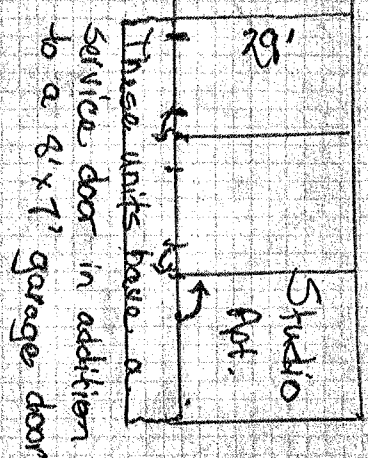 29'
Studio
Apt.
These units have a
service door in addition
to a 8'x7' garage door